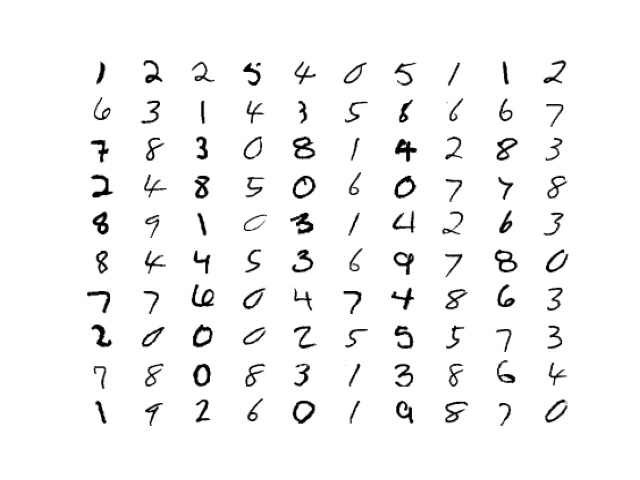 1 2 2 5 4 0 5 1 1 2
6 3 1 4 3 5 8 6 6 7
7 8 3 0 8 1 4 2 8 3
2 4 8 5 0 6 0 7 7 8
8 9 1 0 3 1 4 2 6 3
8 4 4 5 3 6 9 7 8 0
7 7 6 0 4 7 4 8 6 3
2 0 0 0 2 5 5 5 7 3
7 8 0 8 3 1 3 8 6 4
1 9 2 6 0 1 9 8 7 0